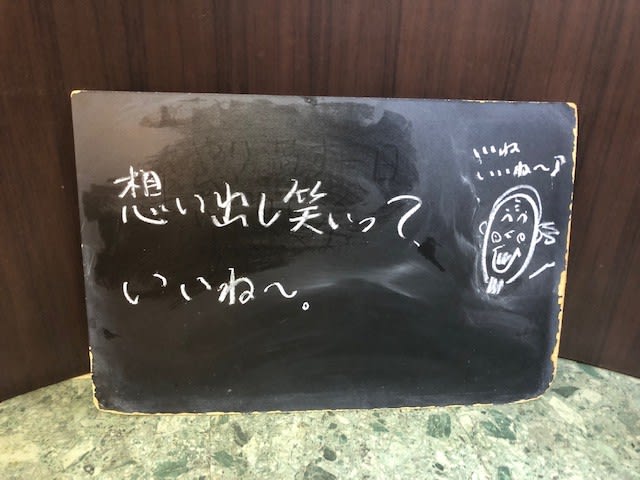 想い出し笑いって、
いいね〜。
いいね
いいね〜♪